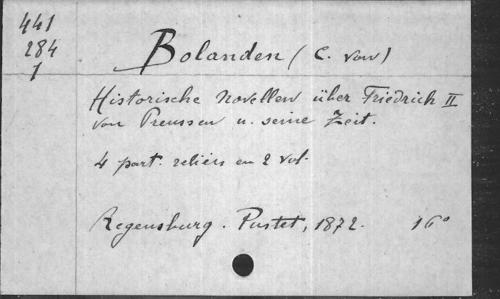 441
284
1
Bolanden (C. von)
Historische Novellen über Friedrich II
von Preussen u. seine Zeit.
4 part. reliés en 2 vol.
Regensburg. Pustet, 1872. 16°